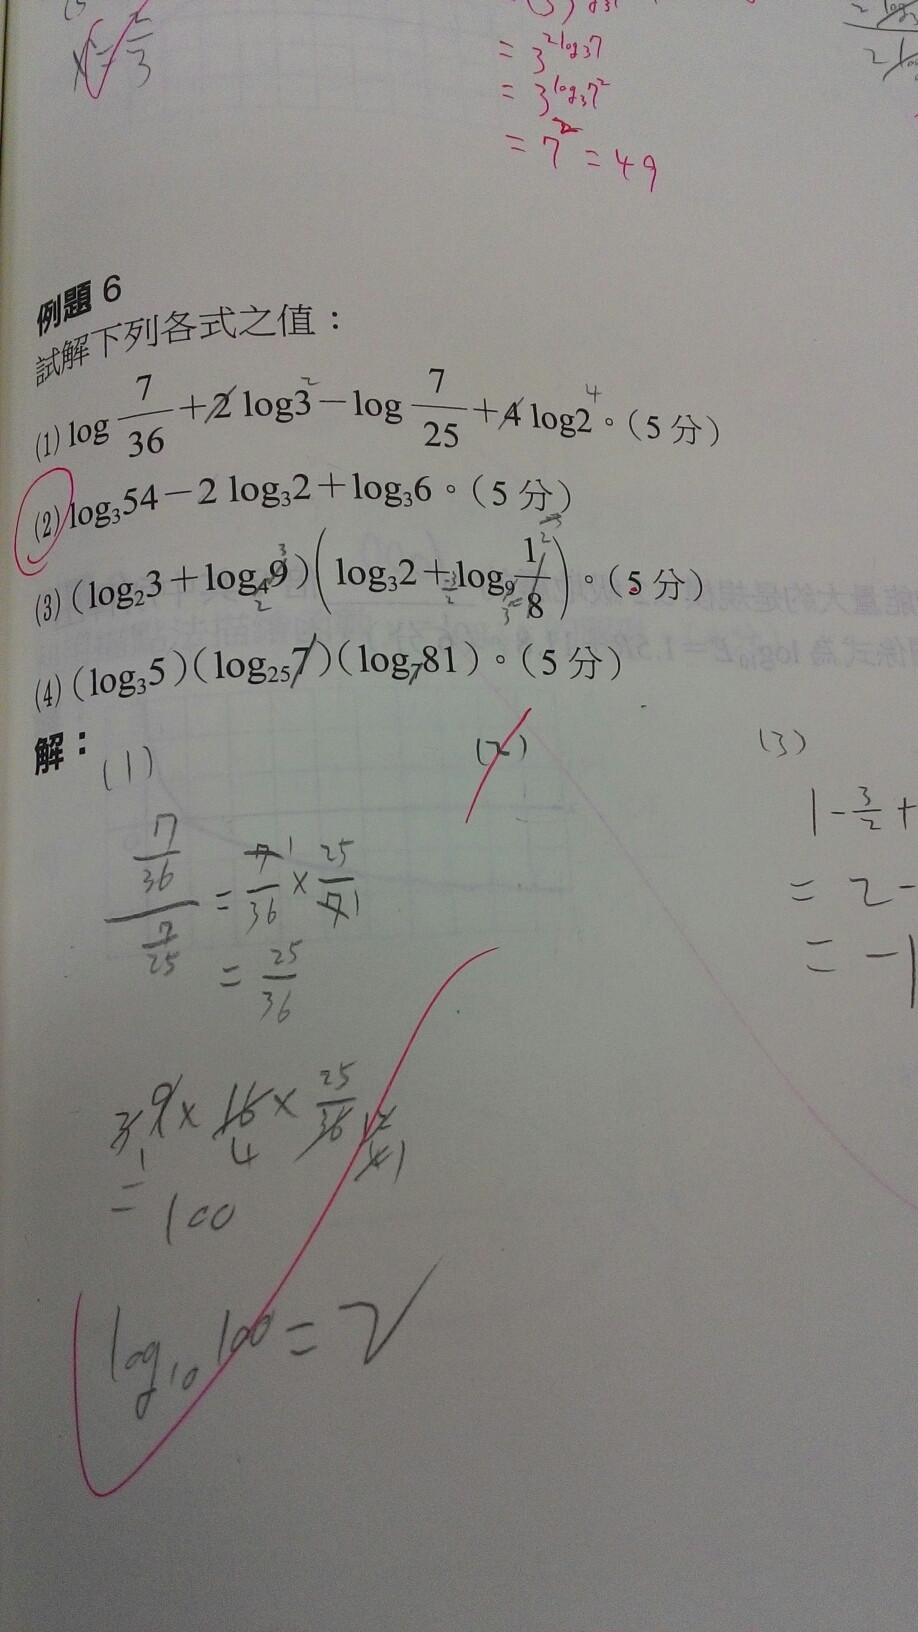 x = 2/3
= 3^{2log₃7}
= 3^{log₃7²}
= 7² = 49
例題 6
試解下列各式之值：
(1) log 7/36 + 2 log3 − log 7/25 + 4 log2。（5 分）
(2) log₃54 − 2 log₃2 + log₃6。（5 分）
(3) (log₂3 + log₄9)(log₃2 + log₉ 1/8)。（5 分）
(4) (log₃5)(log₂₅7)(log₇81)。（5 分）
解：
(1) (2) (3)
7/36 / 7/25 = 7/36 × 25/7
= 25/36
9 × 16 × 25/36
= 100
log₁₀100 = 2
1 − 3/2 +
= 2 −
= −1